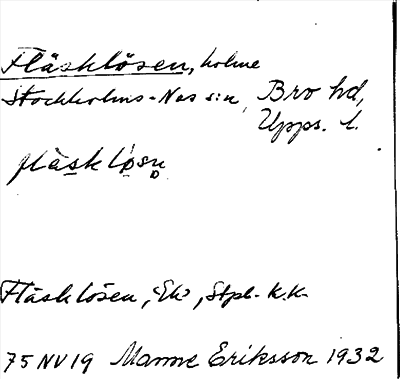 Fläsklösen, holme
Stockholms-Näs s:n, Bro hd,
Upps. l.
fläsklösn
Fläsklösen, "Ek", Stpl. K.K.
75 NV 19 Manne Eriksson 1932